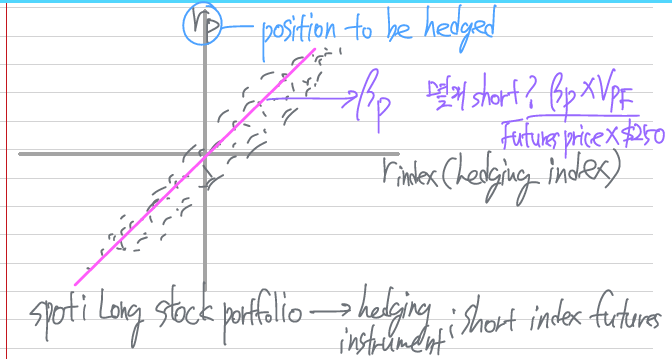 rp — position to be hedged
βp 몇개 short? βp×VPF
Futures price×$250
rindex (hedging index)
spot: Long stock portfolio → hedging instrument : short index futures